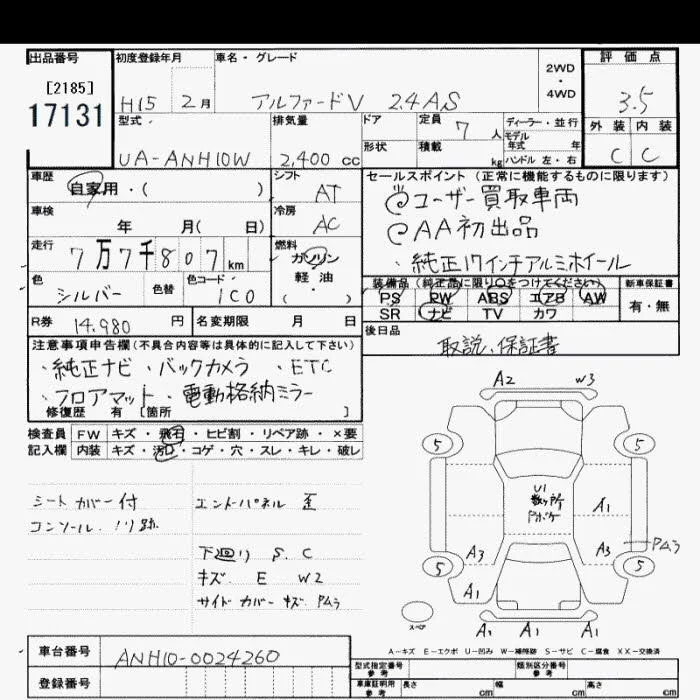 出品番号
[2185]
17131
初度登録年月
H15 2月
車名・グレード
アルファードV 2.4 AS
2WD
・
4WD
評価点
3.5
型式
UA-ANH10W
排気量
2,400 cc
ドア
形状
定員
7 人
積載
kg
ディーラー・並行
モデル
年式 年
ハンドル 左・右
外装 内装
C C
車歴
自家用・( )
シフト
AT
車検
年 月( 日)
冷房
AC
走行
7万7千807km
燃料
ガソリン
軽・油
・( )
色
シルバー
色替
色コード
1C0
R券
14,980 円
名変期限 月 日
セールスポイント(正常に機能するものに限ります)
ユーザー買取車両
AA初出品
・純正17インチアルミホイール
装備品(純正品に限り○をつけてください)
PS PW ABS エアB AW
SR ナビ TV カワ
新車保証書
有・無
後日品
取説、保証書
注意事項申告欄(不具合内容等は具体的に記入して下さい)
・純正ナビ ・バックカメラ ・ETC
・フロアマット ・電動格納ミラー
修復歴 有 [箇所 ]
検査員
記入欄
FW キズ・飛石・ヒビ割・リペア跡・×要
内装 キズ・汚れ・コゲ・穴・スレ・キレ・破レ
シートカバー付
コンソール ノリ跡
エンドパネル 歪
下廻り S. C
キズ E W2
サイドカバー キズ PAラ
A2 W3
5 5
U1
数ヶ所
A1
A3 A3 PAラ
5 5
A1
スペア
A1 A1 A1
A-キズ E-エクボ U-凹み W-補修跡 S-サビ C-腐食 XX-交換済
車台番号
ANH10-0024260
登録番号
型式指定番号
参考
類別区分番号
参考
車庫証明用
参考
長さ cm 幅 cm 高さ cm